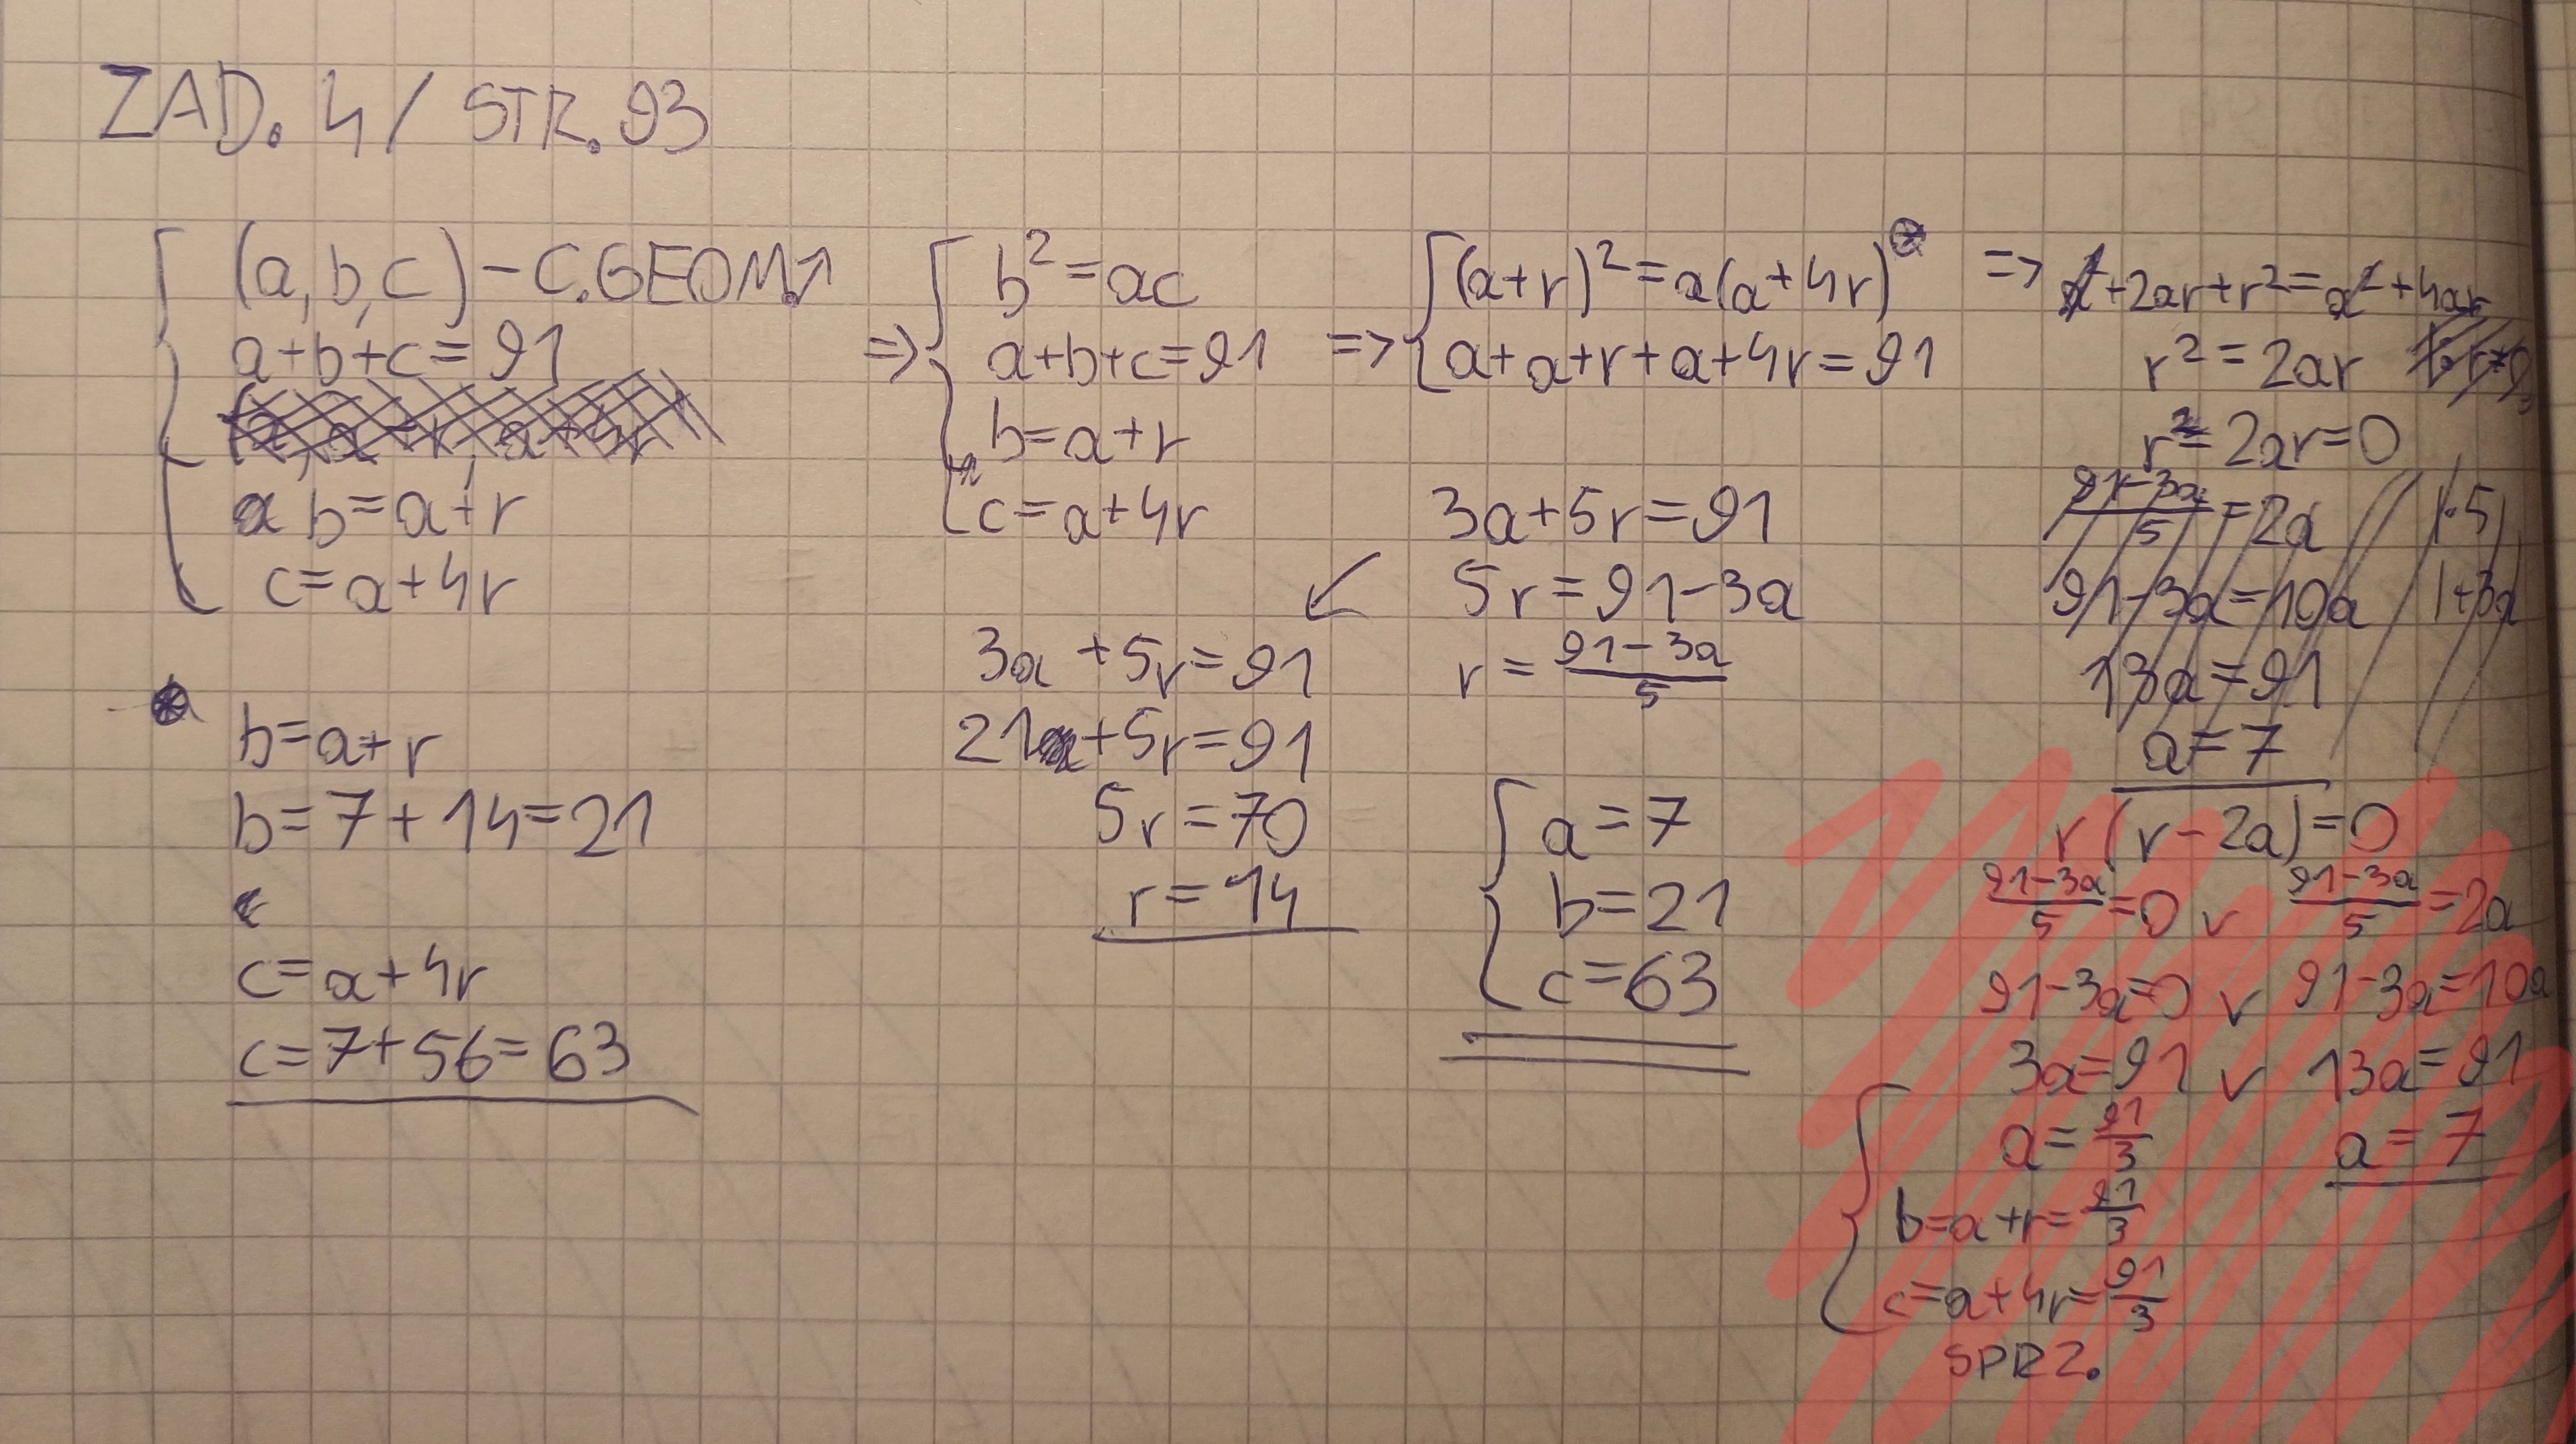 ZAD. 4 / STR. 93
(a, b, c) - C. GEOM. ↑
a+b+c=91
b=a+r
c=a+4r
=>
b²=ac
a+b+c=91
b=a+r
c=a+4r
=>
(a+r)²=a(a+4r) *
a+a+r+a+4r=91
3a+5r=91
5r=91-3a
r=\frac{91-3a}{5}
=> a²+2ar+r²=a²+4ar
r²=2ar
r²-2ar=0
\frac{91-3a}{5}=2a |·5
91-3a=10a |+3a
13a=91
a=7
r(r-2a)=0
\frac{91-3a}{5}=0 v \frac{91-3a}{5}=2a
91-3a=0 v 91-3a=10a
3a=91 v 13a=91
a=\frac{91}{3} a=7
b=a+r=\frac{91}{3}
c=a+4r=\frac{91}{3}
SPRZ.
3a+5r=91
21+5r=91
5r=70
r=14
*
b=a+r
b=7+14=21
c=a+4r
c=7+56=63
a=7
b=21
c=63